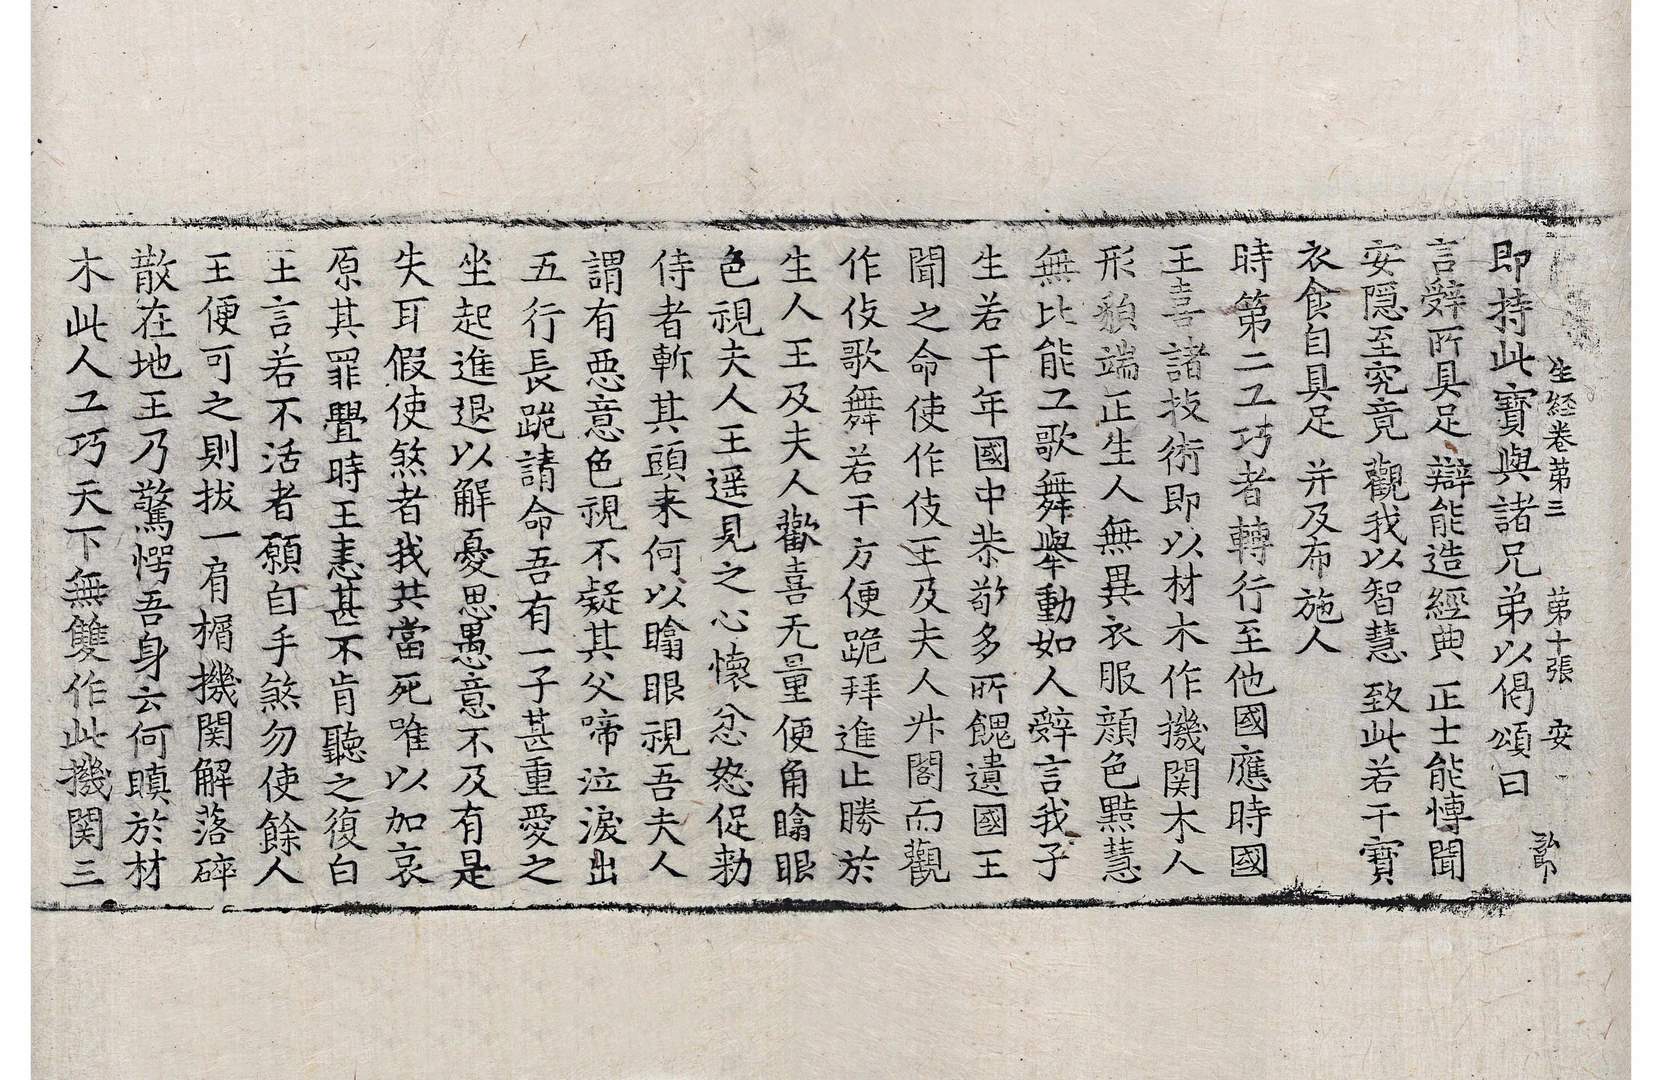 生經卷第三　第十張　安
即持此寶與諸兄弟以偈頌曰
言辭所具足　辯能造經典　正士能慱聞
安隱至究竟　觀我以智慧　致此若干寶
衣食自具足　并及布施人
時第二工巧者轉行至他國應時國
王喜諸技術即以材木作機関木人
形貌端正生人無異衣服顔色黠慧
無比能工歌舞舉動如人辭言我子
生若干年國中恭敬多所餽遺國王
聞之命使作伎王及夫人升閣而觀
作伎歌舞若干方便跪拜進止勝於
生人王及夫人歡喜无量便角𥌎眼
色視夫人王遥見之心懷忿怒促勑
侍者斬其頭来何以𥌎眼視吾夫人
謂有惡意色視不疑其父啼泣淚出
五行長跪請命吾有一子甚重愛之
坐起進退以解憂思愚意不及有是
失耳假使煞者我共當死唯以加哀
原其罪舋時王恚甚不肯聽之復白
王言若不活者願自手煞勿使餘人
王便可之則拔一肩楣機関解落碎
散在地王乃驚愕吾身云何瞋於材
木此人工巧天下無雙作此機関三